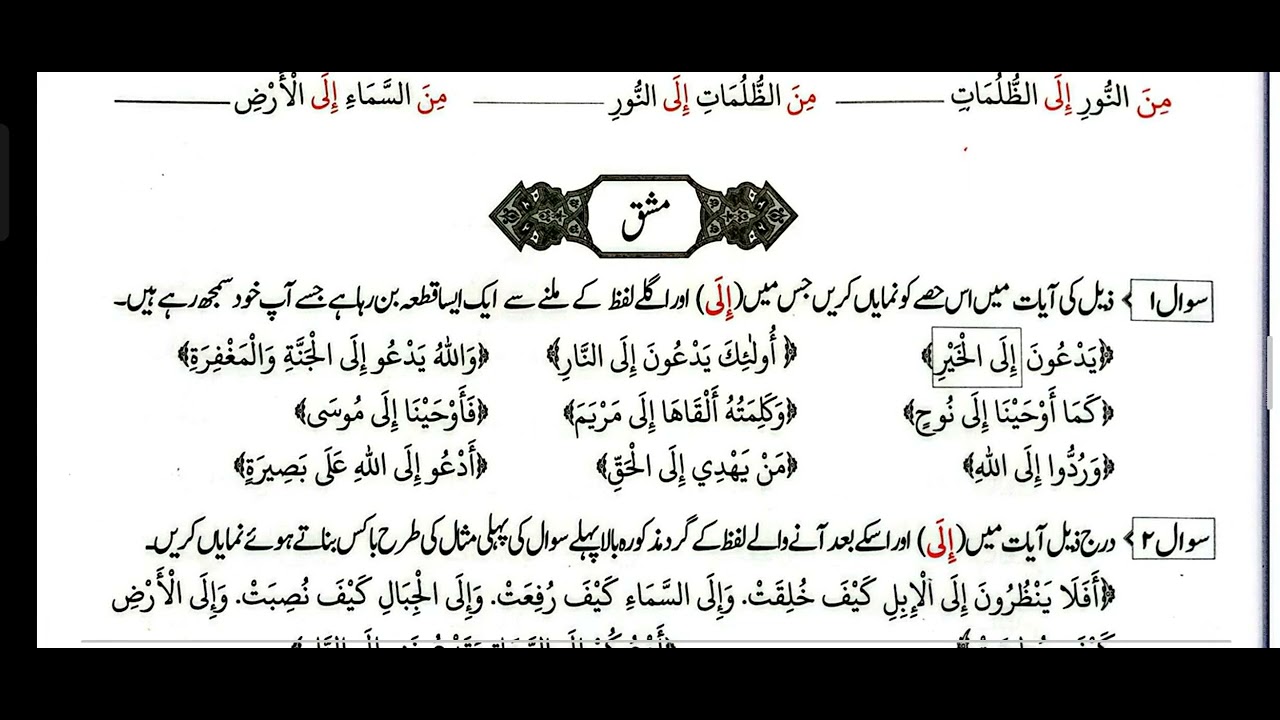 مِنَ النُّورِ إِلَى الظُّلُمَاتِ ــــــ مِنَ الظُّلُمَاتِ إِلَى النُّورِ ــــــ مِنَ السَّمَاءِ إِلَى الْأَرْضِ ــــــ
مشق
سوال ۱ ذیل کی آیات میں اس حصے کو نمایاں کریں جس میں (إِلَى) اور اگلے لفظ کے ملنے سے ایک ایسا قطعہ بن رہا ہے جسے آپ خود سمجھ رہے ہیں۔
﴿يَدْعُونَ إِلَى الْخَيْرِ﴾ ﴿أُولٰئِكَ يَدْعُونَ إِلَى النَّارِ﴾ ﴿وَاللهُ يَدْعُو إِلَى الْجَنَّةِ وَالْمَغْفِرَةِ﴾
﴿كَمَا أَوْحَيْنَا إِلَى نُوحٍ﴾ ﴿وَكَلِمَتُهُ أَلْقَاهَا إِلَى مَرْيَمَ﴾ ﴿فَأَوْحَيْنَا إِلَى مُوسَى﴾
﴿وَرُدُّوا إِلَى اللهِ﴾ ﴿مَنْ يَهْدِي إِلَى الْحَقِّ﴾ ﴿أَدْعُو إِلَى اللهِ عَلَى بَصِيرَةٍ﴾
سوال ۲ درج ذیل آیات میں (إِلَى) اور اسکے بعد آنے والے لفظ کے گرد مذکورہ بالا پہلے سوال کی پہلی مثال کی طرح باکس بناتے ہوئے نمایاں کریں۔
﴿أَفَلَا يَنْظُرُونَ إِلَى الْإِبِلِ كَيْفَ خُلِقَتْ. وَإِلَى السَّمَاءِ كَيْفَ رُفِعَتْ. وَإِلَى الْجِبَالِ كَيْفَ نُصِبَتْ. وَإِلَى الْأَرْضِ